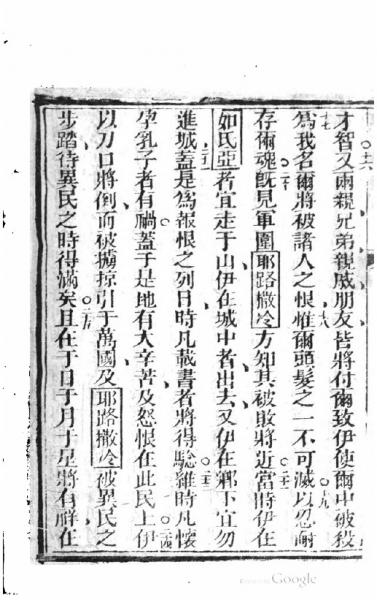 才智又爾親兄弟親戚朋友皆將付爾致伊使爾中被殺
爲我名爾將被諸人之恨惟爾頭髮之一不可滅以忍耐
存爾魂旣見軍圍耶路撒冷方知其被敗將近當時伊在
如氏亞者宜走于山伊在城中者出去又伊在鄉下宜勿
進城蓋是爲報恨之列日時凡載書者將得騐雖時凡懷
孕乳子者有禍蓋于是地有大辛苦及怒恨在此民上伊
以刀口將倒而被擄掠引于萬國及耶路撒冷被異民之
步踏待異民之時得滿矣且在于日于月于星將有祥在
Google